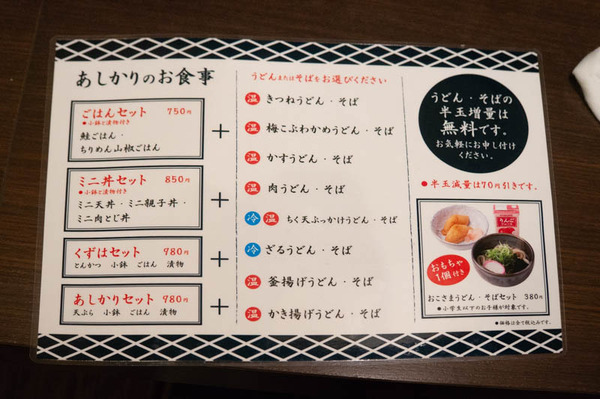 あしかりのお食事
ごはんセット 750円
●小鉢と漬物付き
鮭ごはん・
ちりめん山椒ごはん
ミニ丼セット 850円
●小鉢と漬物付き
ミニ天丼・ミニ親子丼・
ミニ肉とじ丼
くずはセット 980円
とんかつ 小鉢 ごはん 漬物
あしかりセット 980円
天ぷら 小鉢 ごはん 漬物
+
+
+
+
うどんまたはそばをお選びください
温 きつねうどん・そば
温 梅こぶわかめうどん・そば
温 かすうどん・そば
温 肉うどん・そば
冷 温 ちく天ぶっかけうどん・そば
冷 ざるうどん・そば
温 釜揚げうどん・そば
温 かき揚げうどん・そば
うどん・そばの
半玉増量は
無料です。
お気軽にお申し付け
ください。
●半玉減量は70円引きです。
りんご
おもちゃ
1個付き
おこさまうどん・そばセット 380円
●小学生以下のお子様が対象です。
●価格は全て税込みです。